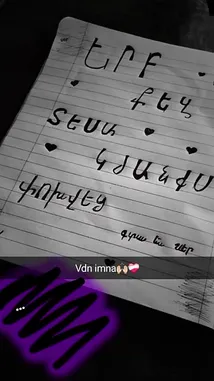 ԵՐԲ
ՔԵԶ
ՏԵՍԱ
ԿՅԱՆՔՍ
ՓՈԽՎԵՑ
Vdn imna🙌🏻❤️‍🩹